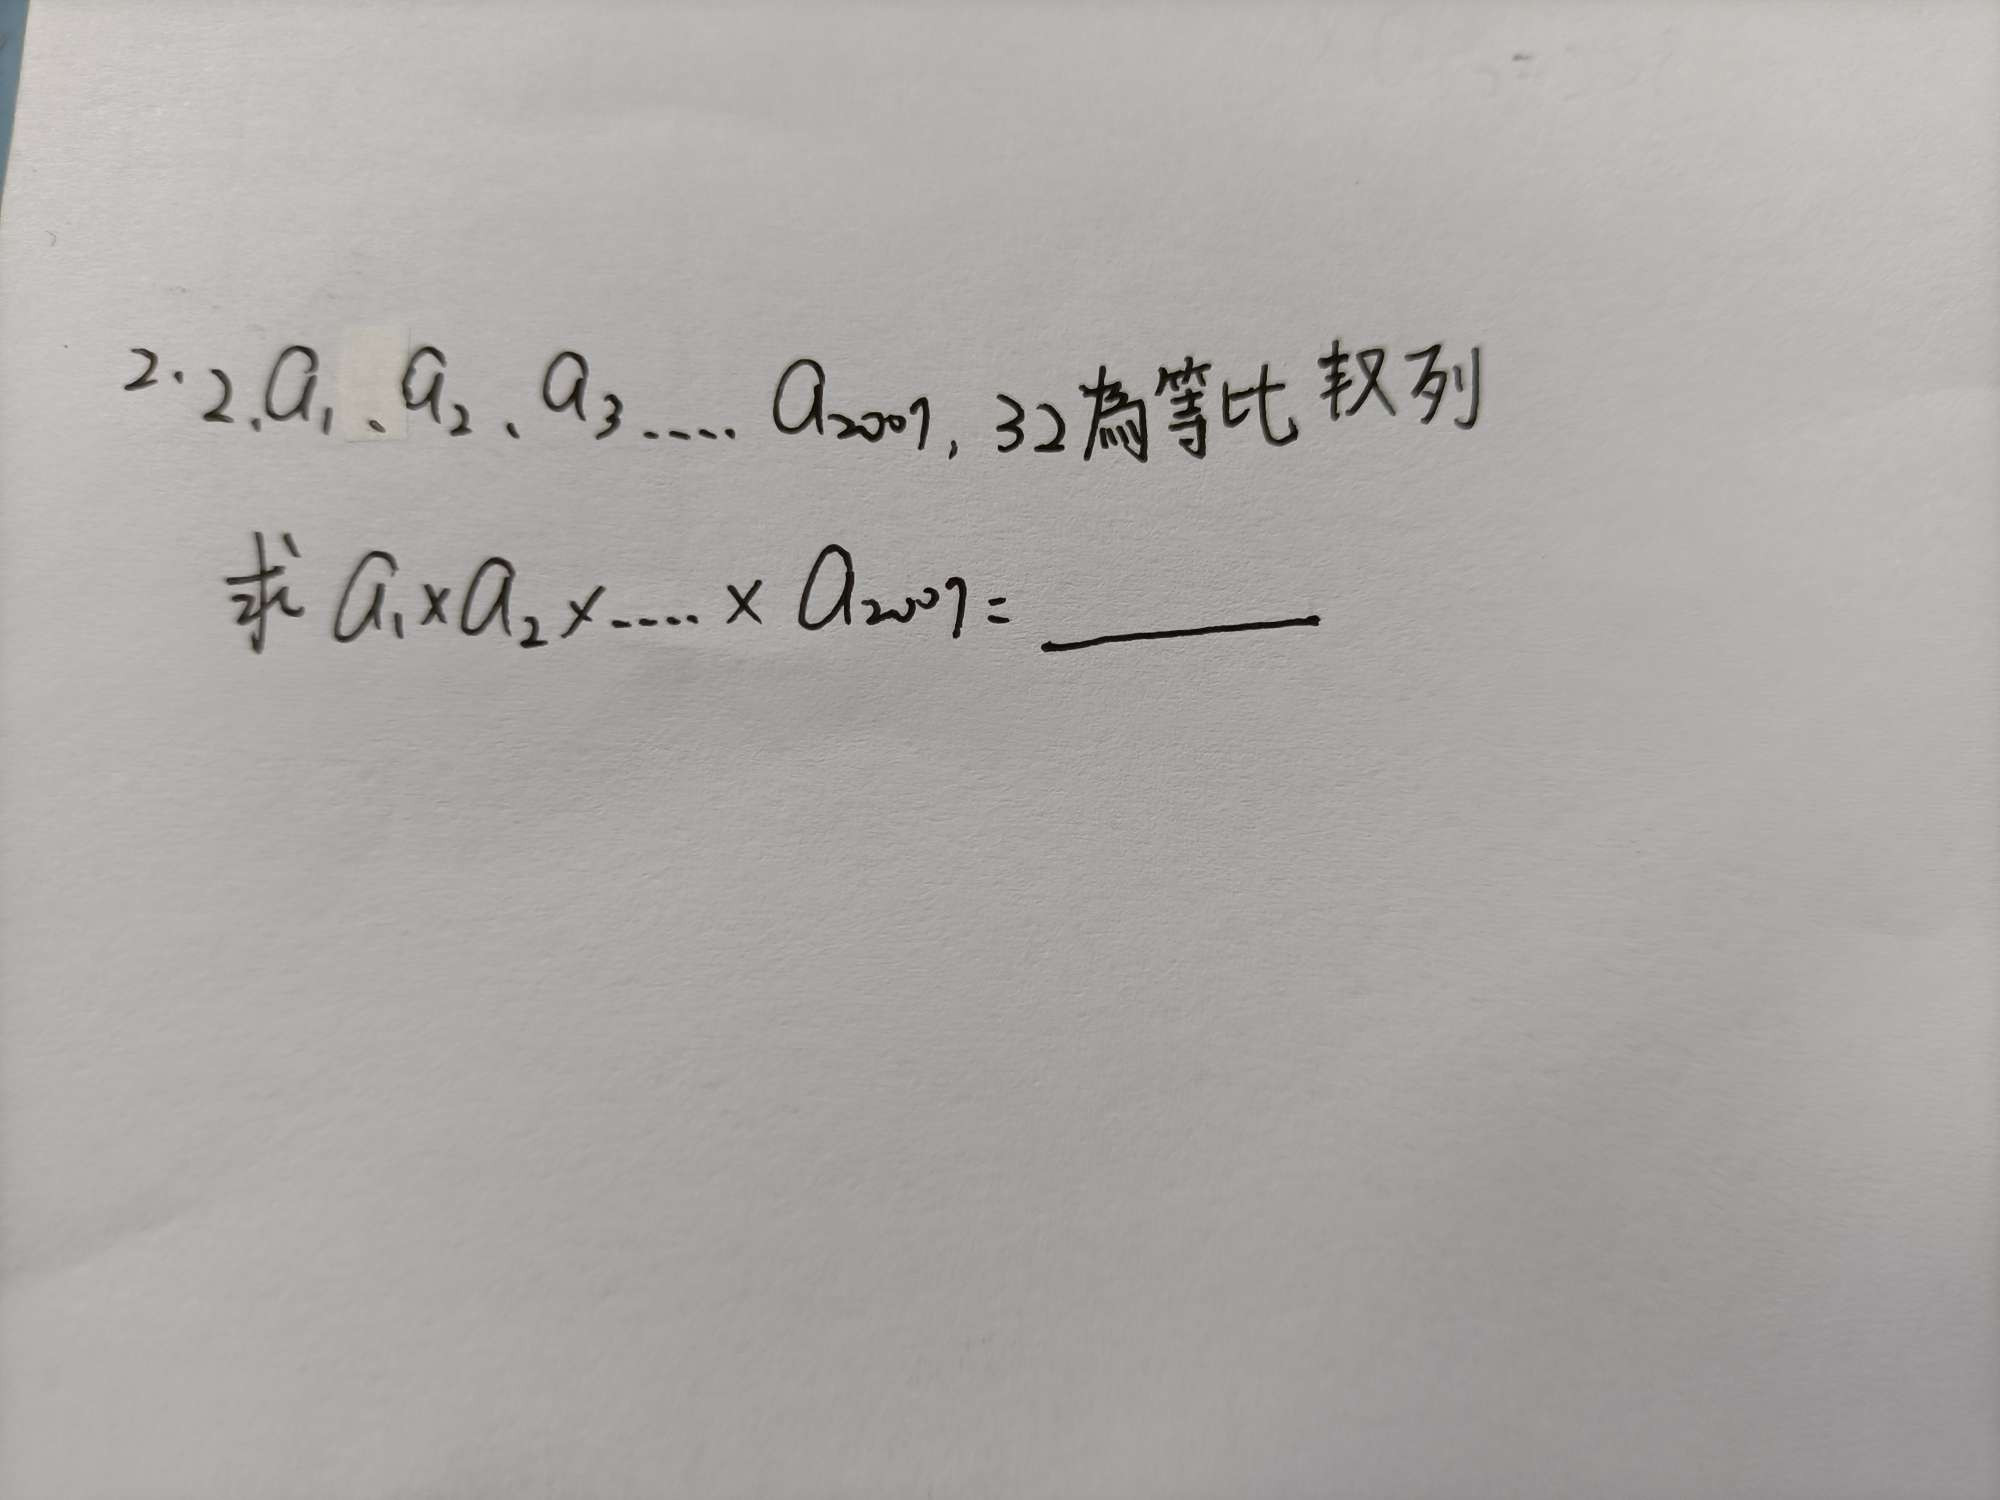 2. 2、a₁、a₂、a₃..... a₂₀₀₇, 32為等比数列
求 a₁×a₂×.....×a₂₀₀₇=______